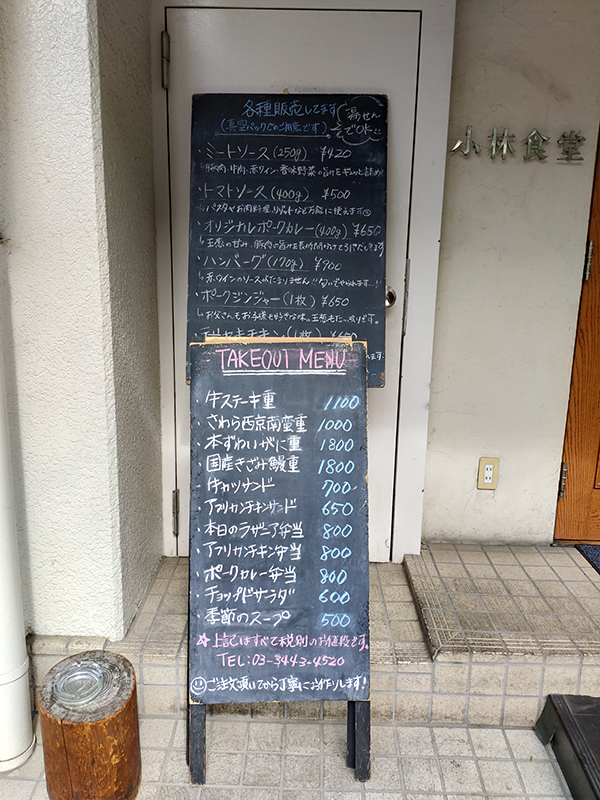 各種販売してます
(真空パックでのご用意です)
湯せん
でOK
小林食堂
・ミートソース(250g) ¥420
↳豚肉・牛肉・赤ワイン・香味野菜の旨みをギュッと詰め
・トマトソース(400g) ¥500
↳パスタやお肉料理、リゾットなど万能に使えます
・オリジナルポークカレー(400g) ¥650
↳玉葱の甘み、豚肉の旨みを長時間かけて引きだしてます
・ハンバーグ(170g) ¥900
↳赤ワインのソースがたまりません!!匂いでやられます…!!
・ポークジンジャー(1枚) ¥650
↳お父さんもお子様も好きな味。玉葱もたっぷりです。
・テリヤキチキン(1枚) ¥650
ます。
TAKEOUT MENU
・牛ステーキ重 1100
・さわら西京南蛮重 1000
・本ずわいがに重 1800
・国産きざみ鰻重 1800
・牛カツサンド 700
・アフリカンチキンサンド 650
・本日のラザニア弁当 800
・アフリカンチキン弁当 800
・ポークカレー弁当 800
・チョップドサラダ 600
・季節のスープ 500
☆上記はすべて税別のお値段です。
TEL:03-3443-4520
ご注文頂いてから丁寧にお作りします!